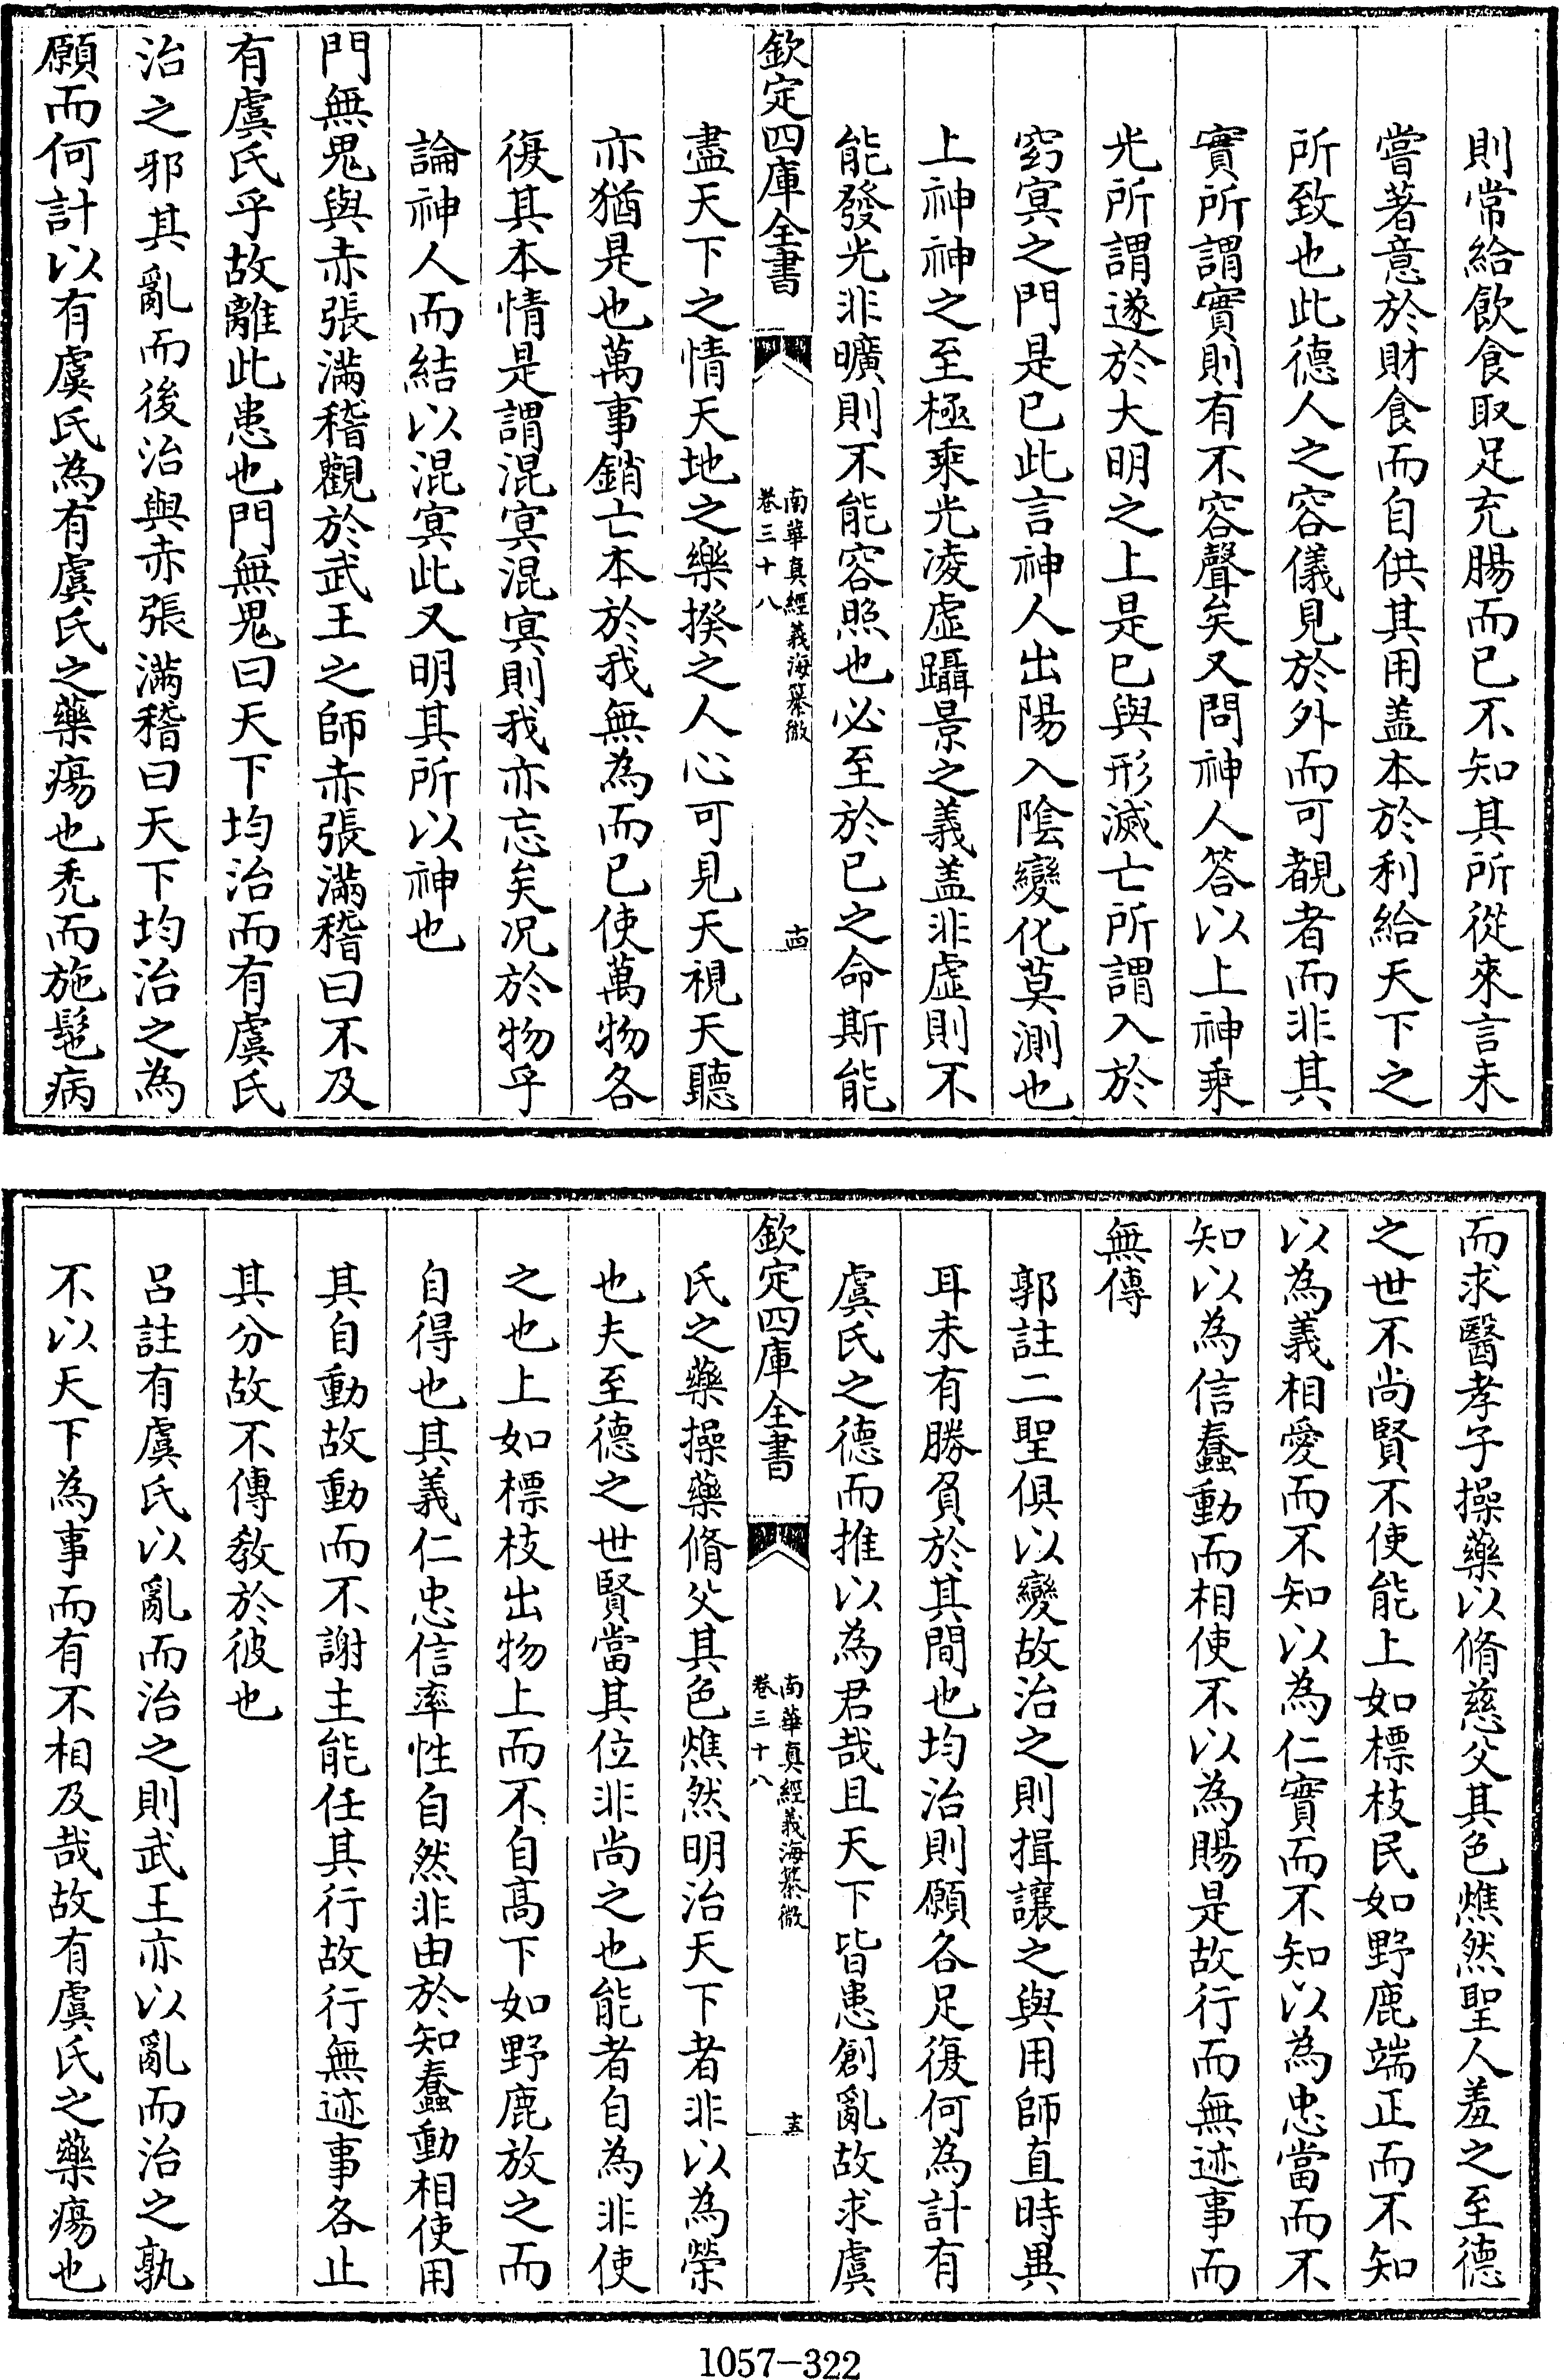 則常給飲食取足充腸而已不知其所從來言未
嘗著意於財食而自供其用盖本於利給天下之
所致也此德人之容儀見於外而可覩者而非其
實所謂實則有不容聲矣又問神人答以上神乗
光所謂遂於大明之上是已與形滅亡所謂入於
窈冥之門是已此言神人出陽入陰變化莫測也
上神神之至極乘光凌虚躡景之義盖非虚則不
能發光非曠則不能容照也必至於已之命斯能
欽定四庫全書
南華真經義海纂微
卷三十八
十四
盡天下之情天地之樂揆之人心可見天視天聽
亦猶是也萬事銷亡本於我無為而已使萬物各
復其本情是謂混冥混冥則我亦忘矣况於物乎
論神人而結以混冥此又明其所以神也
門無鬼與赤張滿稽觀於武王之師赤張滿稽曰不及
有虞氏乎故離此患也門無鬼曰天下均治而有虞氏
治之邪其亂而後治與赤張滿稽曰天下均治之為
願而何計以有虞氏為有虞氏之藥瘍也秃而施髢病
而求醫孝子操藥以脩慈父其色燋然聖人羞之至德
之世不尚賢不使能上如標枝民如野鹿端正而不知
以為義相愛而不知以為仁實而不知以為忠當而不
知以為信蠢動而相使不以為賜是故行而無迹事而
無傳
郭註二聖俱以變故治之則揖讓之與用師直時異
耳未有勝負於其間也均治則願各足復何為計有
虞氏之德而推以為君哉且天下皆患創亂故求虞
欽定四庫全書
南華真經義海纂微
卷三十八
十五
氏之藥操藥脩父其色燋然明治天下者非以為榮
也夫至德之世賢當其位非尚之也能者自為非使
之也上如標枝出物上而不自高下如野鹿放之而
自得也其義仁忠信率性自然非由於知蠢動相使用
其自動故動而不謝主能任其行故行無迹事各止
其分故不傳教於彼也
吕註有虞氏以亂而治之則武王亦以亂而治之孰
不以天下為事而有不相及哉故有虞氏之藥瘍也
1057-322